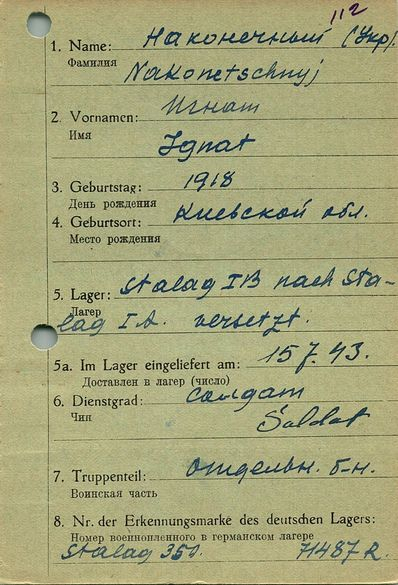 112
1. Name: Наконечный (Укр).
Фамилия
Nakonetschnyj
2. Vornamen: Игнат
Имя
Ignat
3. Geburtstag: 1918
День рождения
4. Geburtsort: Киевской обл.
Место рождения
5. Lager: Stalag IB nach Sta-
Лагер
lag I A. versetzt.
5a. Im Lager eingeliefert am: 15 7. 43.
Доставлен в лагер (число)
6. Dienstgrad: Солдат
Чин
Soldat
7. Truppenteil: Отдельн. б-н.
Воинская часть
8. Nr. der Erkennungsmarke des deutschen Lagers:
Номер военнопленного в германском лагере
Stalag 350. 71487 R.